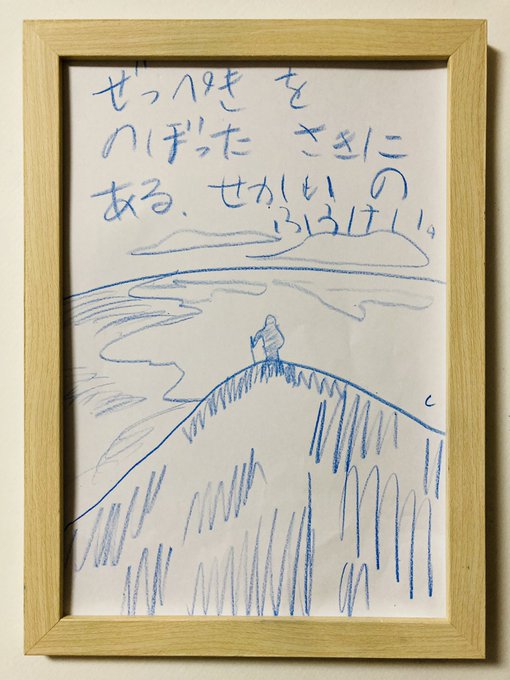 ぜっぺき を
のぼった さきに
ある、せかいの
ふうけい。